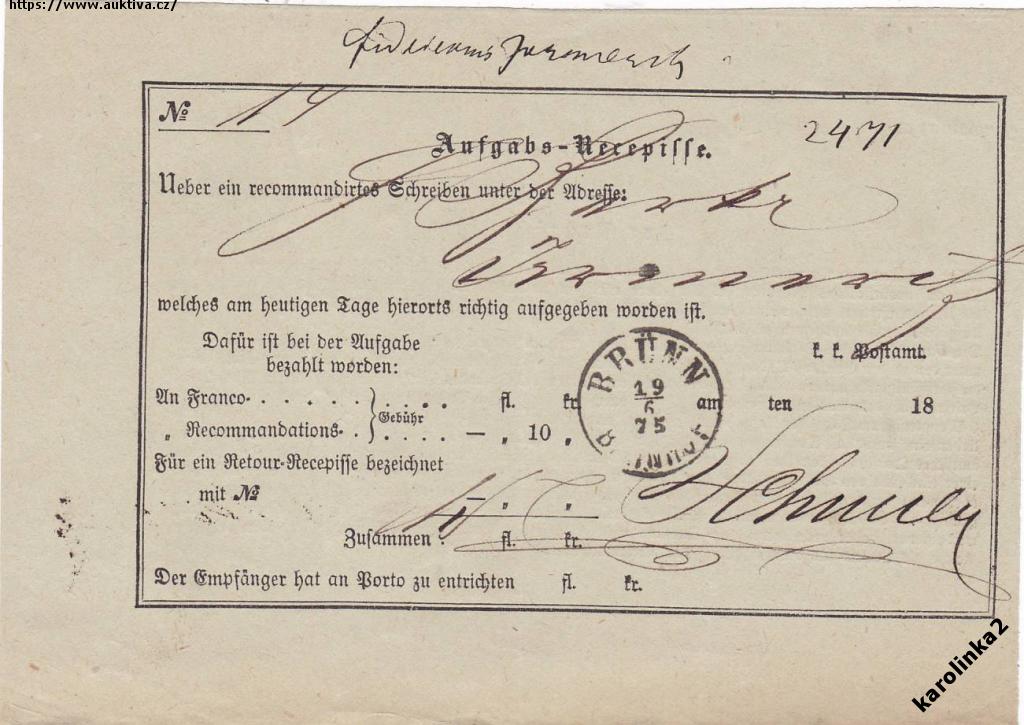 https://www.auktiva.cz/
№ 14
2471
Aufgabs-Recepisse.
Ueber ein recommandirtes Schreiben unter der Adresse:
welches am heutigen Tage hierorts richtig aufgegeben worden ist.
Dafür ist bei der Aufgabe
bezahlt worden:
k. k. Postamt.
BRÜNN
19
6
75
BRÜNN
An Franco . . . . . . . . . . fl. kr.
am ten 18
„ Recommandations . . . . . . — „ 10 „
Gebühr
Für ein Retour-Recepisse bezeichnet
mit № — „ „
Zusammen : fl. kr.
Der Empfänger hat an Porto zu entrichten fl. kr.
karolinka2